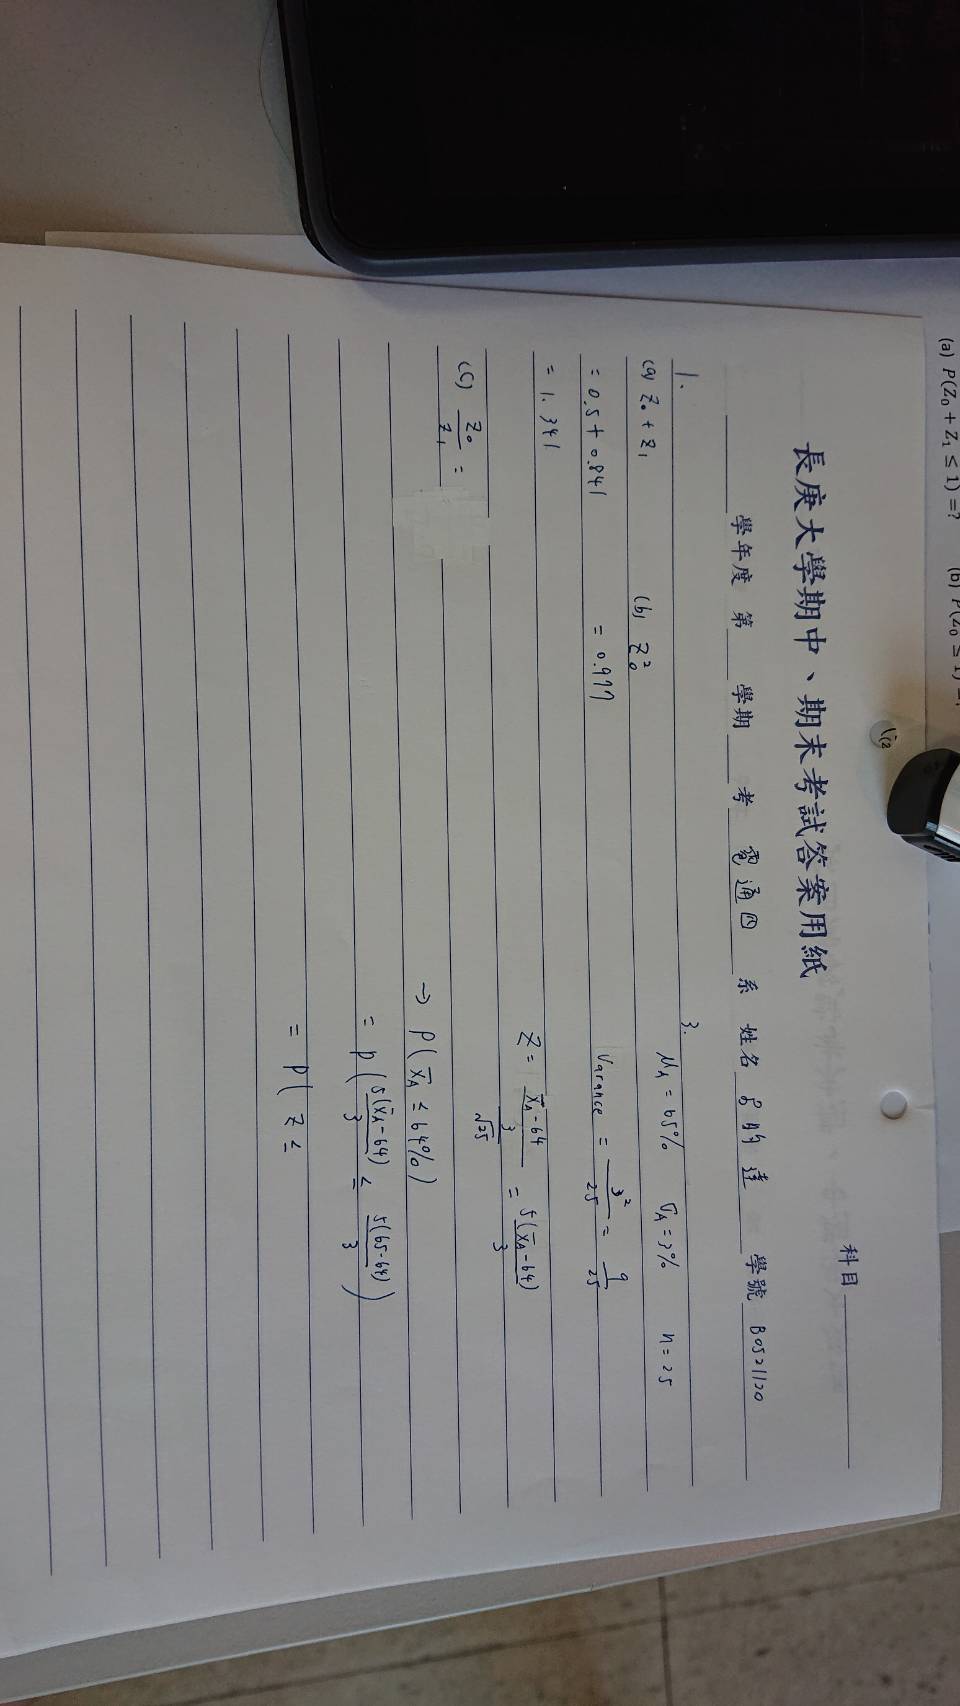 (a) P(Z₀ + Z₁ ≤ 1) =? (b) P(Z₀
科目
長庚大學期中、期末考試答案用紙
學年度 第 學期 考 電通四 系 姓名 達 學號 B0521120
1.
(a) Z₀ + Z₁
= 0.5 + 0.841
= 1.341
(b) Z₀²
= 0.977
(C) Z₀/Z₁ =
3.
μ_A = 65% σ_A = 3% n = 25
Varance = 3²/25 = 9/25
Z = (x̄_A - 64)/(3/√25) = 5(x̄_A - 64)/3
→ P( x̄_A ≤ 64% )
= P( 5(x̄_A - 64)/3 ≤ 5(65 - 64)/3 )
= P( Z ≤